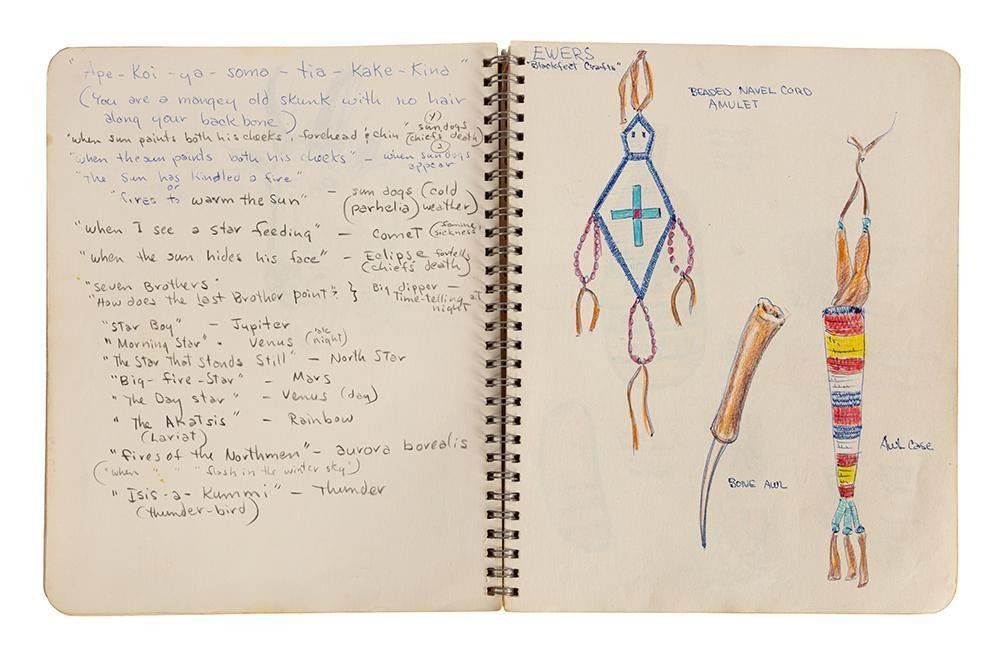 "Ape-Koi-ya-soma-tia-Kake-Kina"
(You are a mangey old skunk with no hair
along your backbone)
"when sun paints both his cheeks, forehead & chin" (4) sundogs
(chiefs death)
"when the sun paints both his cheeks" – when (2) sundogs
appear
"The Sun has kindled a fire"
or
"fires to warm the sun" – sun dogs (cold
(parhelia) weather)
"when I see a star feeding" – Comet (famine
sickness)
"when the sun hides his face" – Eclipse foretells
(chiefs death)
"seven Brothers"
"How does the Last Brother point"? } Big dipper –
Time-telling at
night
"Star Boy" – Jupiter
"Morning Star" - Venus (night)
"The Star that stands Still" – North Star
"Big-fire-Star" – Mars
"The Day star" – Venus (day)
"the Akatsis" – Rainbow
(Lariat)
"fires of the Northmen" – aurora borealis
("when " " " flash in the winter sky")
"Isis-a-Kummi" – Thunder
(thunder-bird)
EWERS
"Blackfeet Crafts"
BEADED NAVEL CORD
AMULET
BONE AWL
AWL CASE